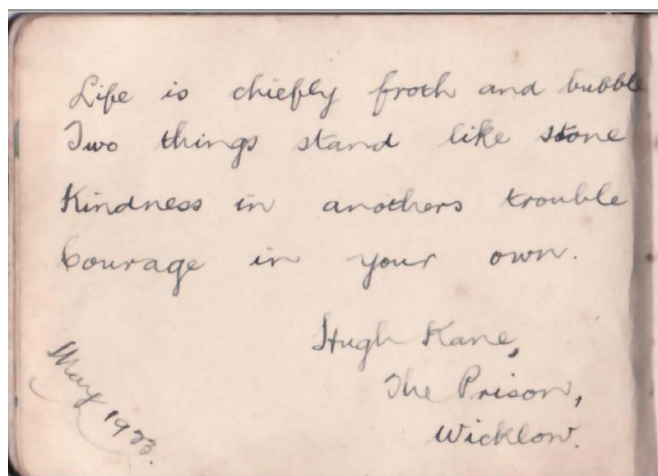 Life is chiefly froth and bubble
Two things stand like stone
Kindness in anothers trouble
Courage in your own.
Hugh Kane,
The Prison,
Wicklow.
May 1923.